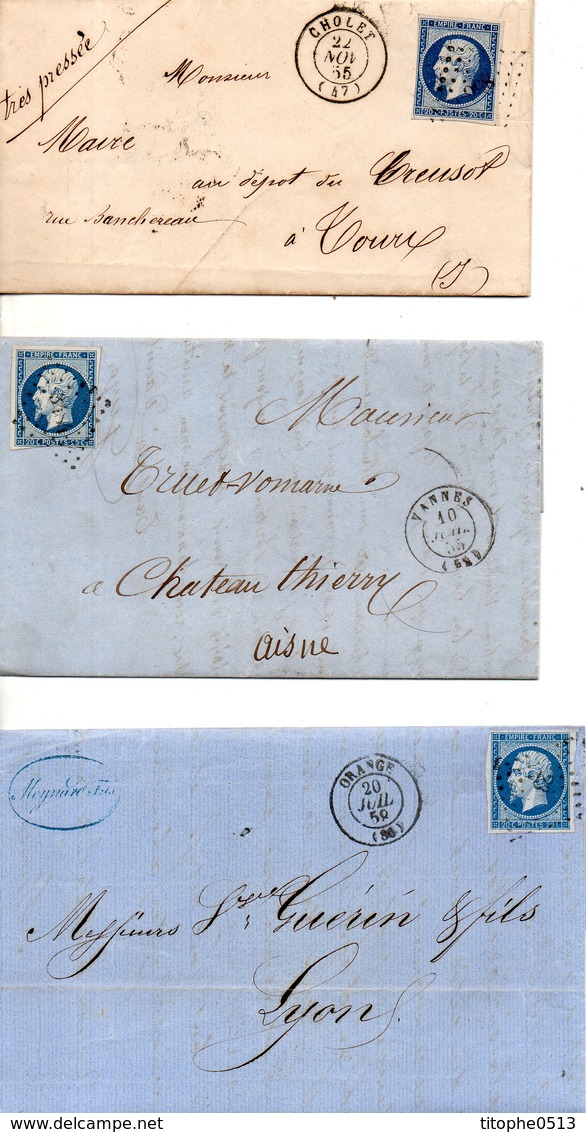 très pressée
CHOLET
22
NOV
55
(47)
EMPIRE·FRANC·
20 C POSTES 20 C
Monsieur
Maire
au dépot du Creusot
rue Banchereau
à Tours
(J)
EMPIRE·FRANC·
20 C POSTES 20 C
Monsieur
Truet-Vomarne
VANNES
10
JUIL
55
à Chateau thierry
aisne
Meynard Fils
ORANGE
20
JUIL
59
(86)
EMPIRE·FRANC·
20 C POSTES 20 C
Messieurs Vve Guérin & fils
Lyon
titophe0513